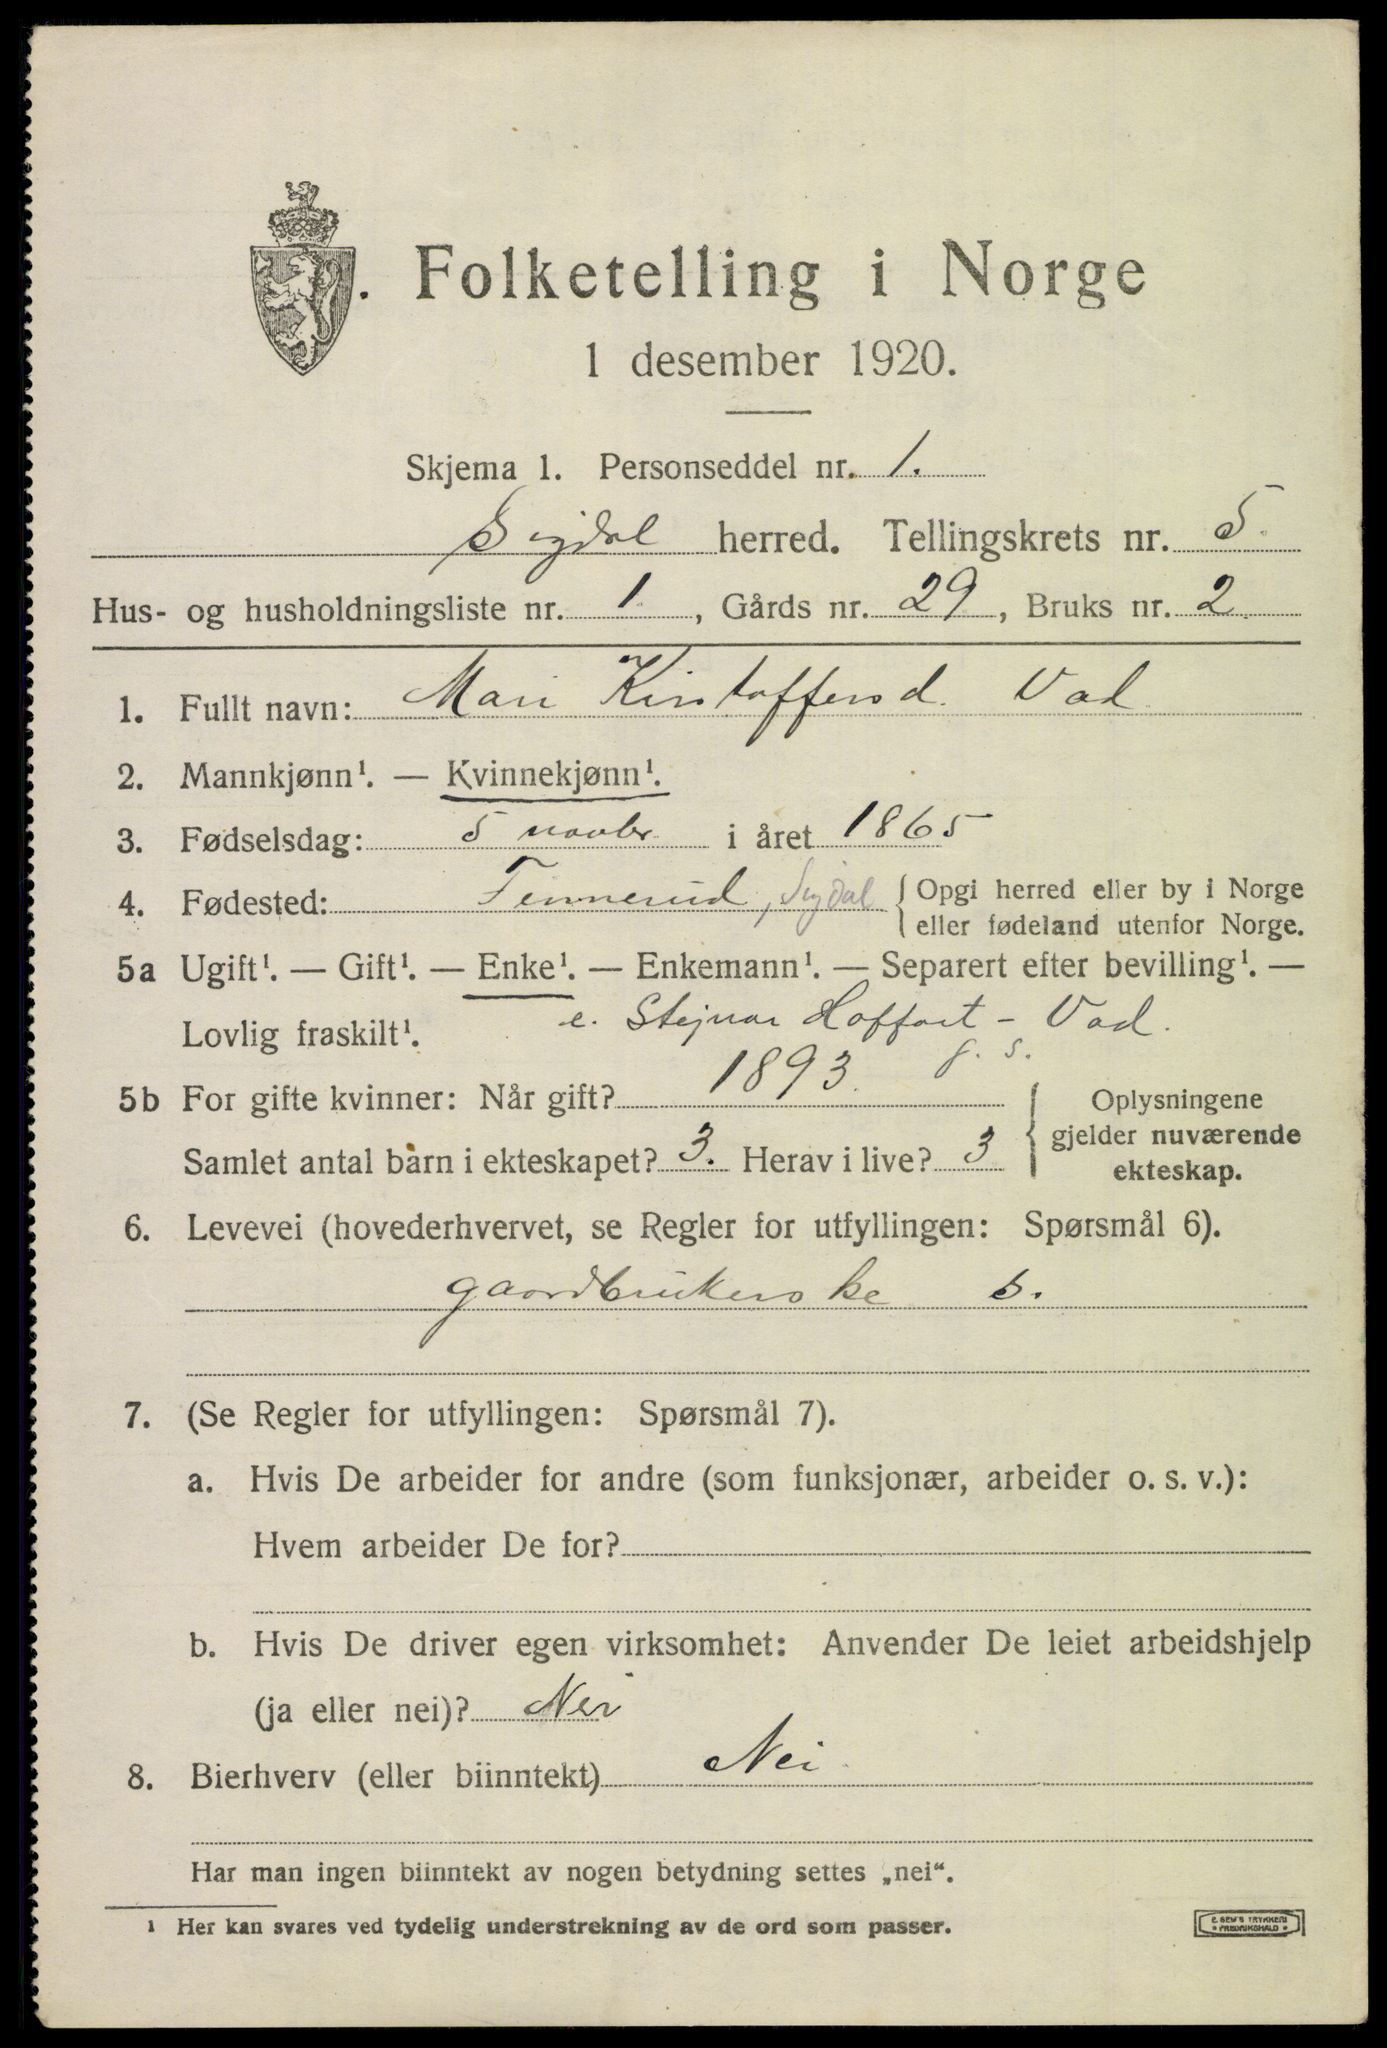 Folketelling i Norge
1 desember 1920.
Skjema 1. Personseddel nr. 1.
Sigdal herred. Tellingskrets nr. 5.
Hus- og husholdningsliste nr. 1, Gårds nr. 29, Bruks nr. 2
1. Fullt navn: Mari Kristoffersd. Vad
2. Mannkjønn¹. — Kvinnekjønn¹.
3. Fødselsdag: 5 novbr i året 1865
4. Fødested: Tinnerud, Sigdal { Opgi herred eller by i Norge
eller fødeland utenfor Norge.
5a Ugift¹. — Gift¹. — Enke¹. — Enkemann¹. — Separert efter bevilling¹. —
Lovlig fraskilt¹. e. Stejnar Hoffart - Vad.
g. s.
5b For gifte kvinner: Når gift? 1893. { Oplysningene
gjelder nuværende
Samlet antal barn i ekteskapet? 3. Herav i live? 3
ekteskap.
6. Levevei (hovederhvervet, se Regler for utfyllingen: Spørsmål 6).
gaardbrukerske s.
7. (Se Regler for utfyllingen: Spørsmål 7).
a. Hvis De arbeider for andre (som funksjonær, arbeider o. s. v.):
Hvem arbeider De for?
b. Hvis De driver egen virksomhet: Anvender De leiet arbeidshjelp
(ja eller nei)? Nei
8. Bierhverv (eller biinntekt) Nei
Har man ingen biinntekt av nogen betydning settes „nei“.
¹ Her kan svares ved tydelig understrekning av de ord som passer.
E. SEM'S TRYKKERI
FREDRIKSHALD